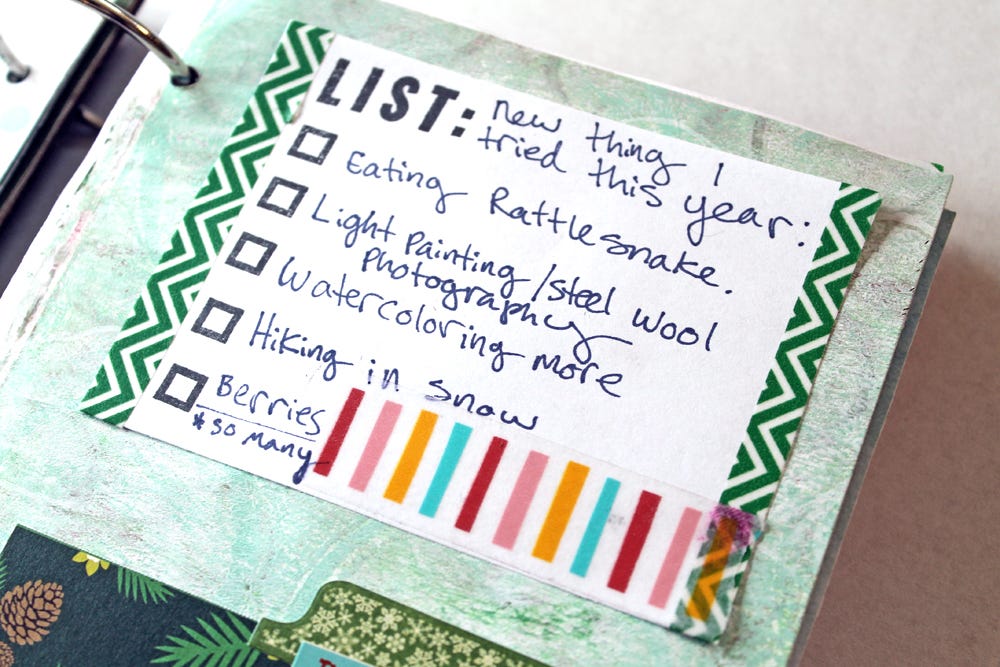 LIST: New thing I
tried this year:
Eating Rattlesnake.
Light Painting/steel wool
Photography
Watercoloring more
Hiking in snow
Berries
* so many